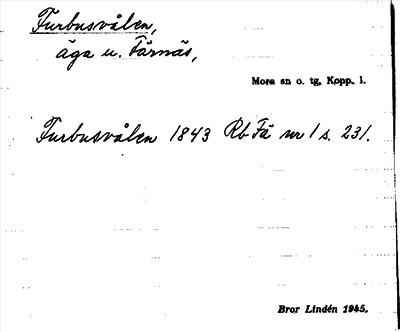 Furbusvålen,
äga u. Färnäs,
Mora sn o. tg, Kopp. l.
Furbusvålen 1843 Rb Fä nr 1 s. 231.
Bror Lindén 1945.